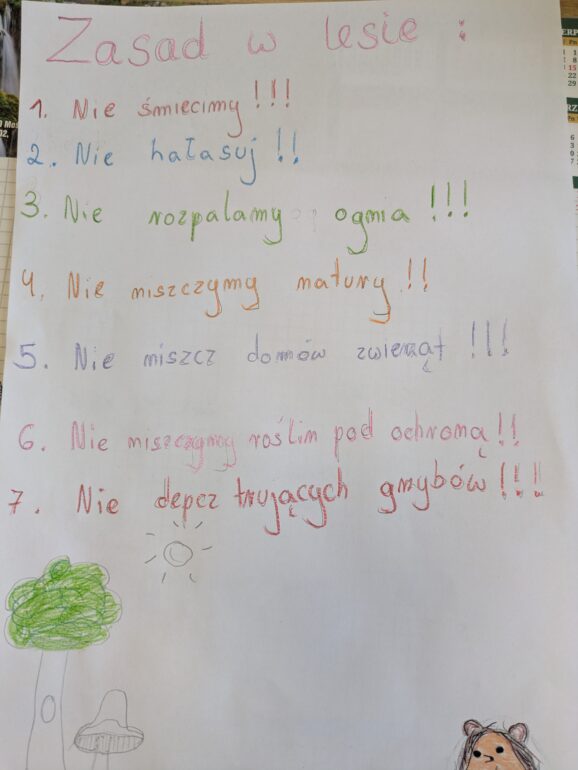 Zasad w lesie :
1. Nie śmiecimy !!!
2. Nie hałasuj !!
3. Nie rozpalamy ognia !!!
4. Nie niszczymy natury !!
5. Nie niszcz domów zwierząt !!!
6. Nie niszczymy roślin pod ochroną !!
7. Nie depcz trujących grzybów !!!